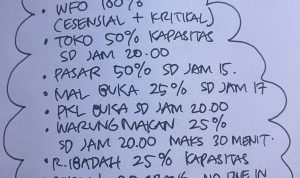 • WFO 100%
(ESENSIAL + KRITIKAL)
• TOKO 50% KAPASITAS
SD JAM 20.00
• PASAR 50% SD JAM 15.
• MAL BUKA 25% SD JAM 17
• PKL BUKA SD JAM 20.00
• WARUNG MAKAN 25%
SD JAM 20.00 MAKS 30 MENIT.
• R. IBADAH 25% KAPASITAS